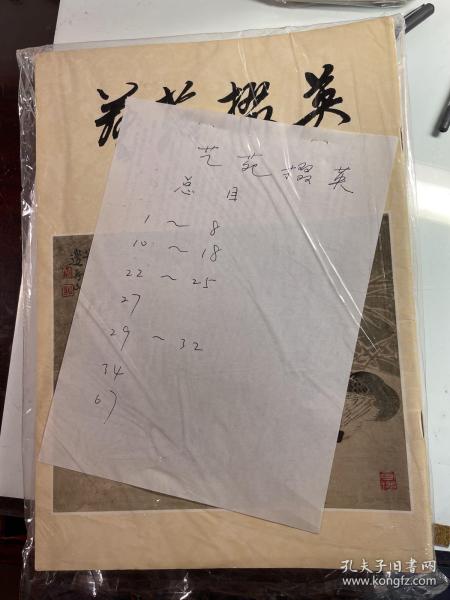 艺苑掇英
艺苑掇英
总目
1~8
10~18
22~25
27
29~32
34
67
孔夫子旧书网
www.kongfz.com